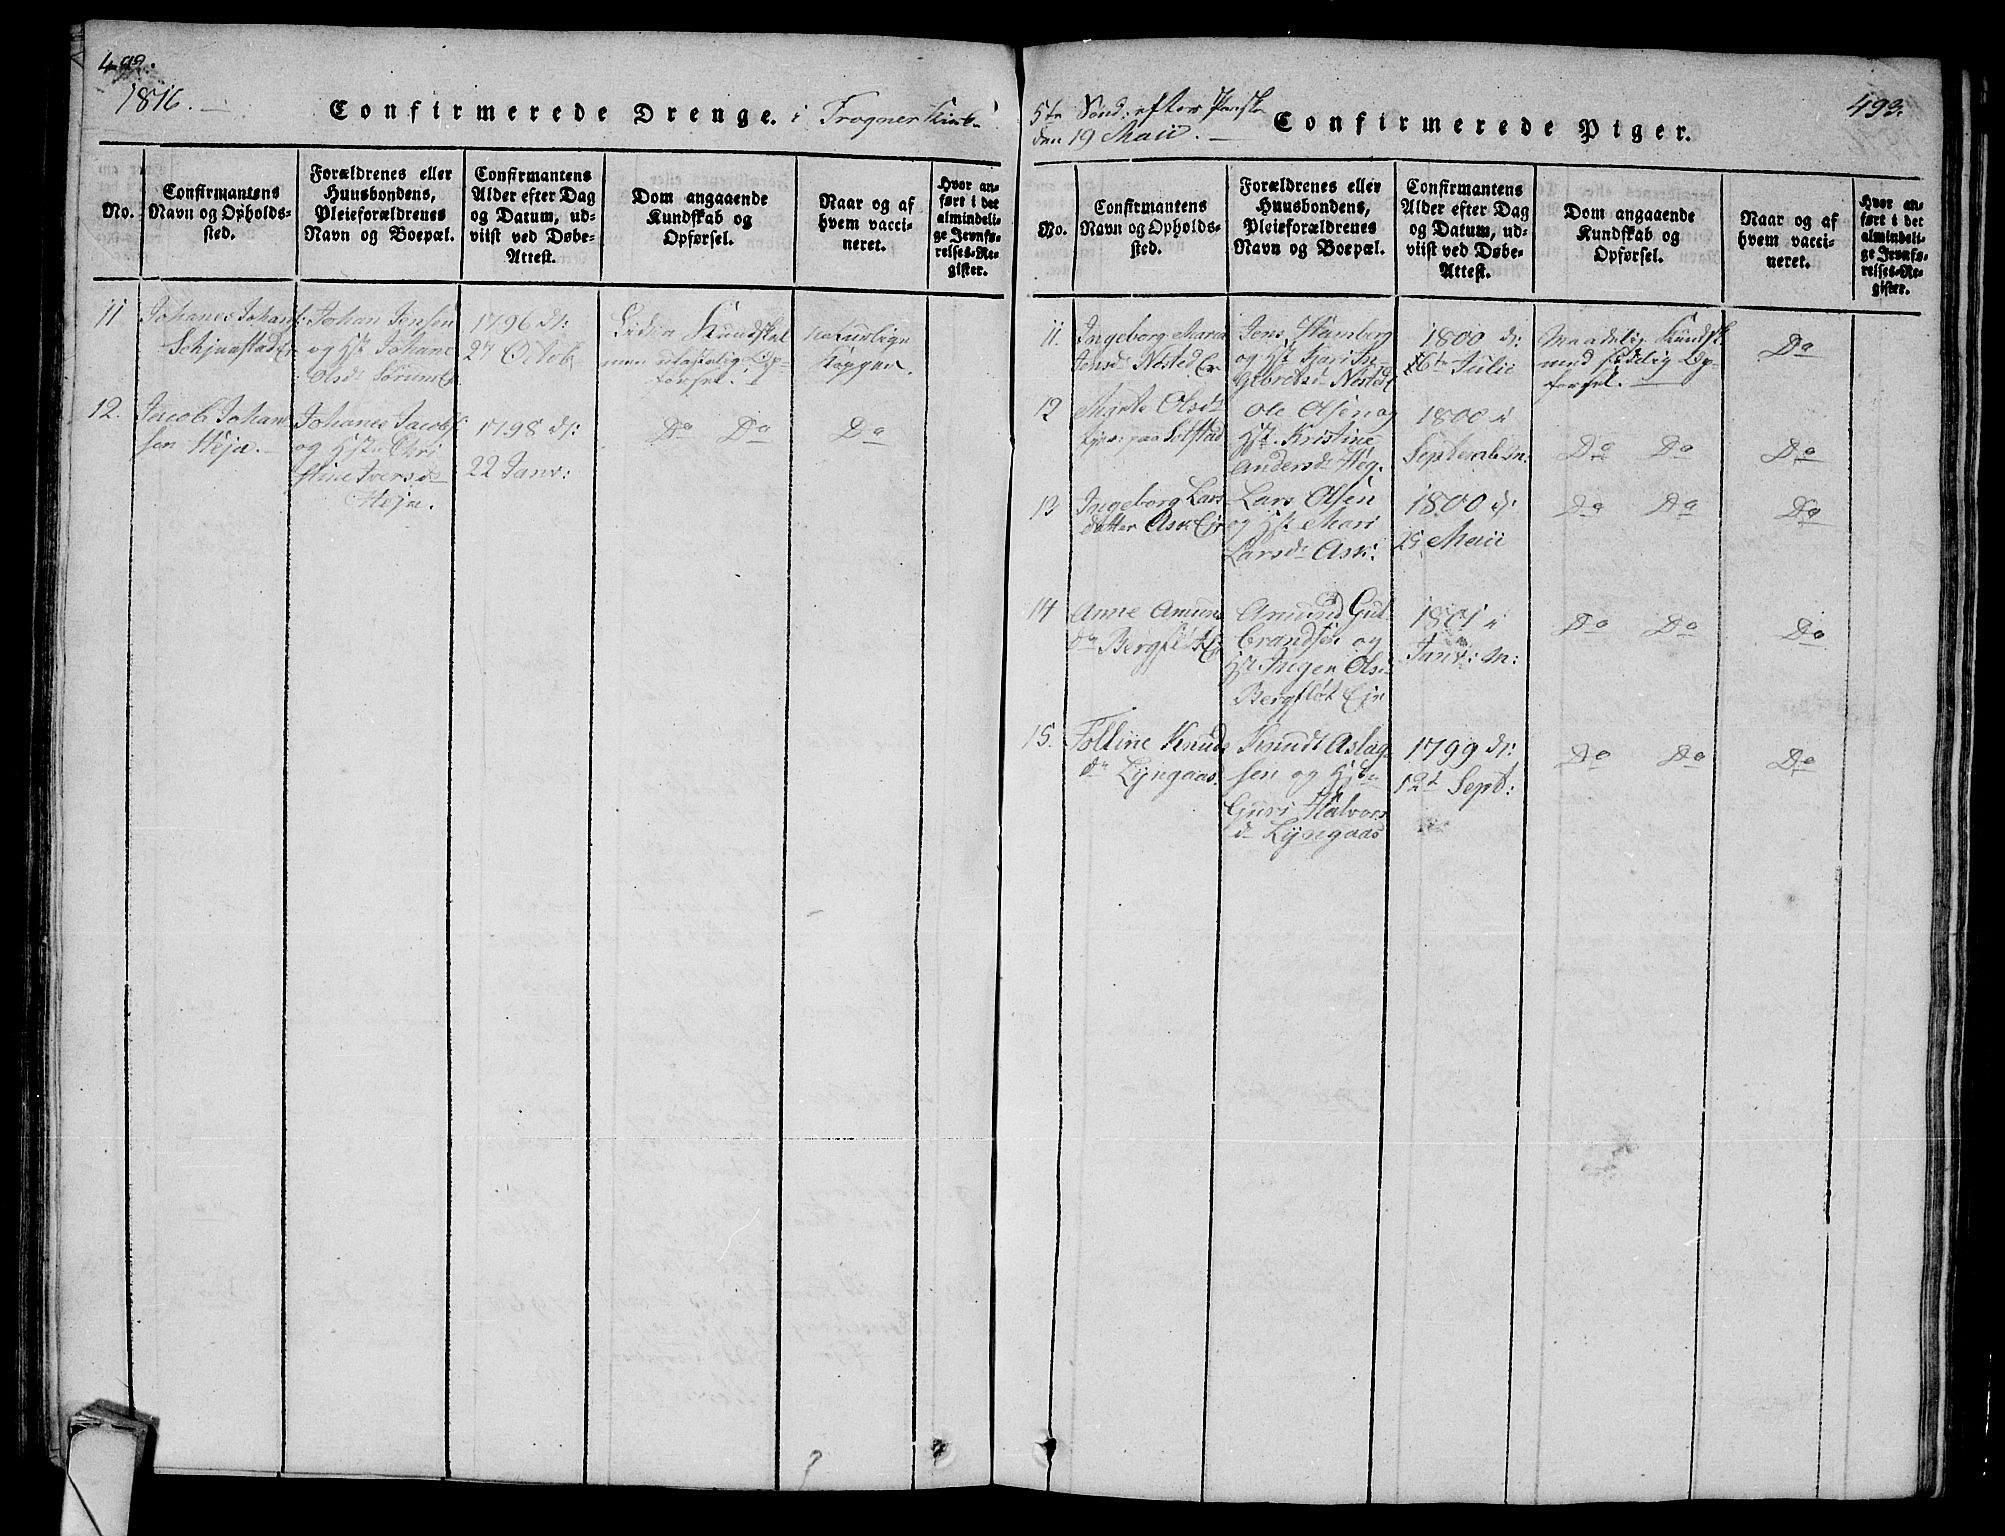 492.
1816.
Confirmerede Drenge. i Frogner Kirke
No.
Confirmantens
Navn og Opholds-
sted.
Forældrenes eller
Huusbondens,
Pleieforældrenes
Navn og Boepæl.
Confirmantens
Alder efter Dag
og Datum, ud-
viist ved Døbe-
Attest.
Dom angaaende
Kundskab og
Opførsel.
Naar og af
hvem vacci-
neret.
Hvor an-
ført i det
almindeli-
ge Jevnfø-
relses-Re-
gister.
11
Johannes Johans:
Johan Jensen
og Hst. Johane
Olsdr Sørum
1796 d:
27 Octob.
Kundskab
naturlige
Kopper.
12.
Jacob Johan
sen Heja.
Johanes Jacobs
og Hst. Chri
stine Iversdr
Heja.
1798 d:
22 Janv:
Do Do
Do
5te Sønd: efter Paaske
den 19 Maii.
Confirmerede Piger.
493.
No.
Confirmantens
Navn og Opholds-
sted.
Forældrenes eller
Huusbondens,
Pleieforældrenes
Navn og Boepæl.
Confirmantens
Alder efter Dag
og Datum, ud-
viist ved Døbe-
Attest.
Dom angaaende
Kundskab og
Opførsel.
Naar og af
hvem vacci-
neret.
Hvor an-
ført i det
almindeli-
ge Jevnfø-
relses-Re-
gister.
11.
Ingeborg Maria
Jensdr Nested Er
Jens Hamberg
og Hst Kjari In-
gebretsdr Nested
1800 d:
16te Julii
Maadelig Kundsk.
med sædelig Op-
førsel.
Do
12
Marte Olsdr
paa
Ole Olsen og
Hst. Kristine
Andersdr Heg.
1800 i
September m:
Do Do
Do
13
Ingeborg Lars
datter Ask Ejr
Lars Olsen
og Hst Mari
Larsdr Ask:
1800 d:
25 Maii
Do Do
Do
14
Anne Amun
dr Bergfløt Er
Amund Gul
brandsen og
Hst Ingen Ols
Bergfløt Ejr
1801 i
Janv: m:
Do Do
Do
15.
Tolline Knuds
dr Lyngaas.
Knudt Aslag
sen og Hst
Guri Halvors
dr Lyngaas
1799 d:
12t Sept:
Do Do
Do